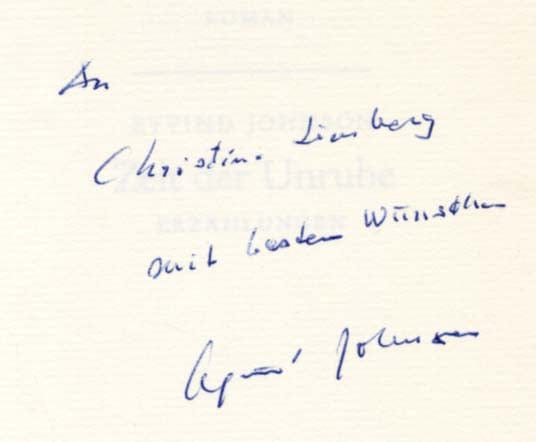 ROMAN
EYVIND JOHNSON
Zeit der Unruhe
ERZÄHLUNGEN
An
Christina Limberg
mit besten Wünschen
Eyvind Johnson